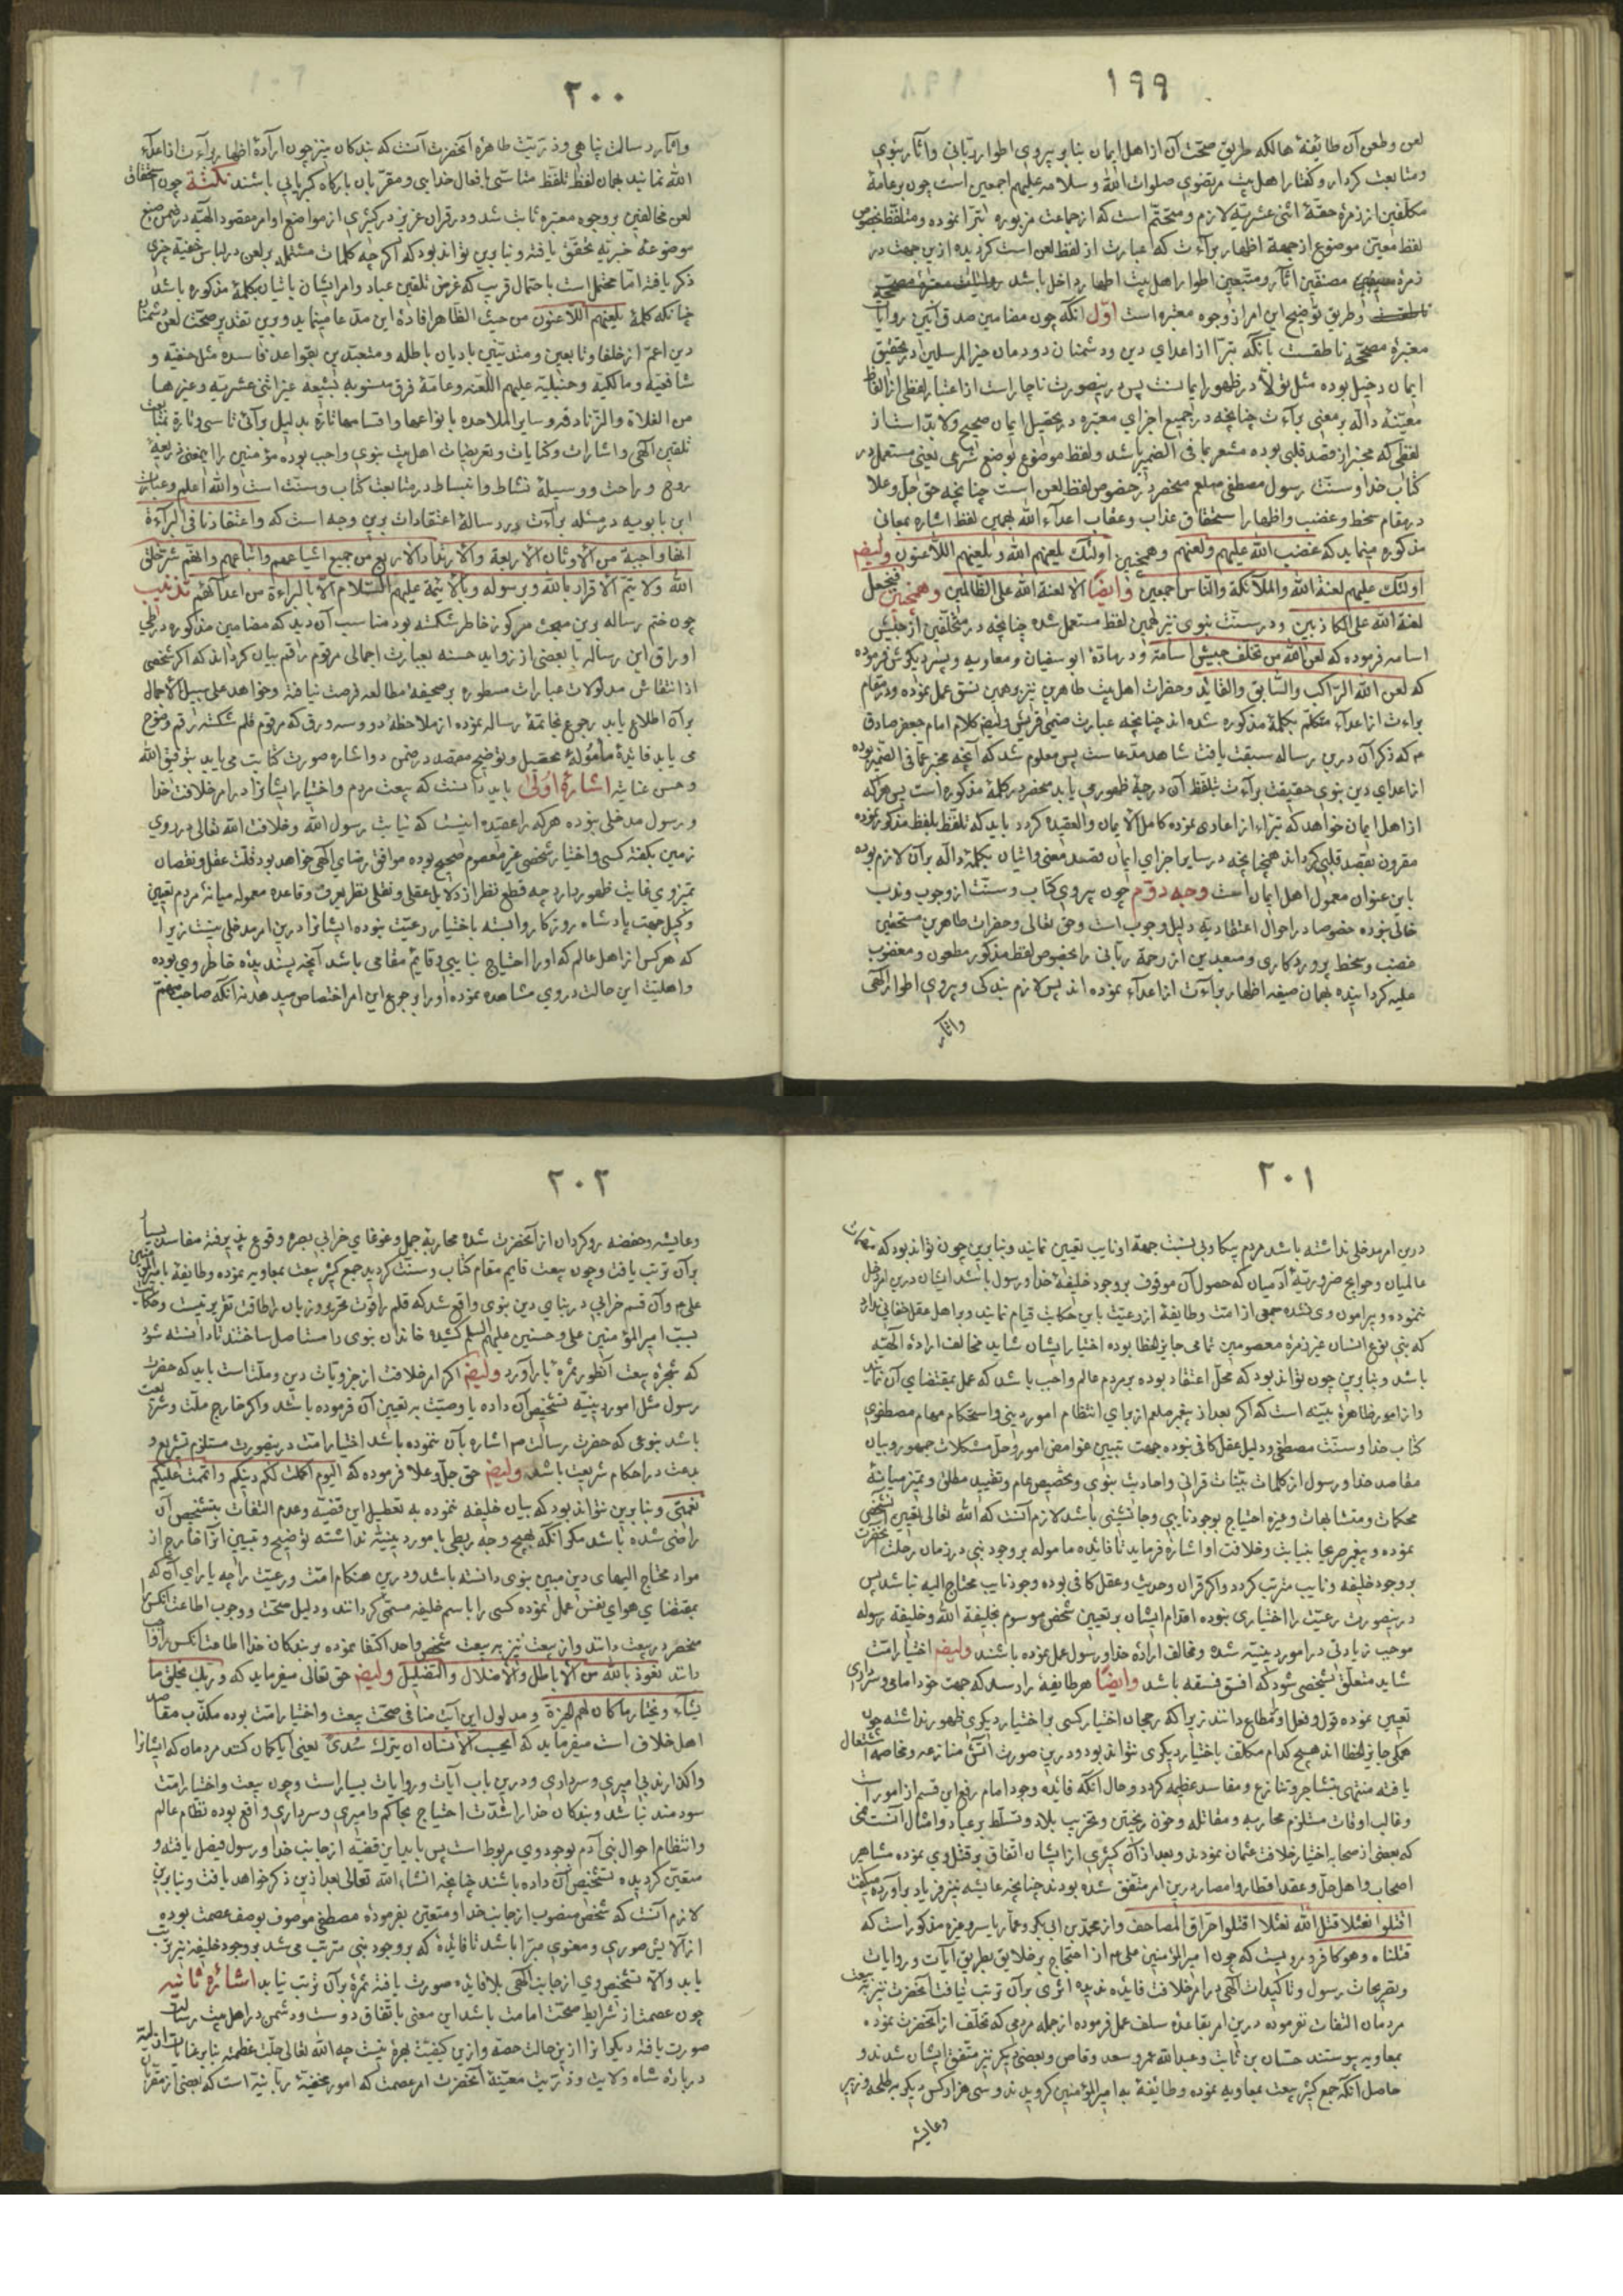 ۱۹۹
لعن وطعن آن طائفهٔ هالکه طریق صحّت آن از اهل ایمان بنابر پیروی اطوار ربّانی واثار نبوی
ومتابعت کردار وگفتار اهل بیت مرتضوی صلوات الله وسلامه علیهم اجمعین است چون بر عامهٔ
مکلّفین از زمرهٔ حقّهٔ اثنی عشریّه لازم ومتحتّم است که از جماعت مزبوره تبرّا نموده ومتلفّظ بخصوص
لفظ معیّن موضوع از جهة اظهار برآءت که عبارت از لفظ لعن است گردیده ازین جهت در
زمرهٔ مصنّفین اثار ومتّبعین اطوار اهل بیت اطهار داخل باشد
وطریق توضیح این امر از وجوه معتبره است اوّل انکه چون مضامین صدق آئین روایات
معتبرهٔ مصحّحه ناطقست بانکه تبرّا از اعدای دین ودشمنان دودمان خیر المرسلین در تحقیق
ایمان دخیل بوده مثل تولّا در ظهور ایمانست پس درینصورت ناچار است از اعتبار لفظی از الفاظ
معیّنهٔ دالّه بر معنی برآءت چنانچه در جمیع اجزای معتبره در تحصیل ایمان صحیح ولابدّ است از
لفظی که مخبر از قصد قلبی بوده مشعر بما فی الضمیر باشد ولفظ موضوع بوضع شرعی یعنی مستعمل در
کتاب خدا وسنّت رسول مصطفی صلعم منحصر در خصوص لفظ لعن است چنانچه حق جلّ وعلا
در مقام سخط وغضب واظهار استحقاق عذاب وعقاب اعدآء الله بهمین لفظ اشاره بمعانی
مذکوره مینماید که غضب الله علیهم ولعنهم وهمچنین اولئك یلعنهم الله ویلعنهم اللاعنون وایضا
اولئك علیهم لعنة الله والملآئکة والناس اجمعین وایضًا الا لعنة الله علی الظالمین وهمچنین فنجعل
لعنة الله علی الکاذبین ودر سنّت نبوی نیز همین لفظ مستعمل شده چنانچه در متخلّفین از جیش
اسامه فرموده که لعن الله من تخلّف جیش اسامة ودر مادّهٔ ابو سفیان ومعاویه وپسر دیگرش فرموده
که لعن الله الراکب والسّابق والقائد وحضرات اهل بیت طاهرین نیز برهمین نسق عمل نموده ودر مقام
براءت از اعدآء متکلّم بکلمهٔ مذکوره شده اند چنانچه عبارت صنمی قریش وایضا کلام امام جعفر صادق
م که ذکر آن درین رساله سبقت یافت شاهد مدّعاست پس معلوم شد که آنچه مخبر عمّا فی الضّمیر بوده
از اعدای دین نبوی حقیقت برآءت بتلفّظ آن درجهٔ ظهور می یابد منحصر در کلمهٔ مذکوره است پس هرکه
از اهل ایمان خواهد که تبرّاء از اعادی نموده کامل الایمان والعقیده گردد باید که تلفّظ بلفظ مذکور نموده
مقرون بقصد قلبی گرداند همچنانچه در سایر اجزای ایمان قصد معنی واتیان بکلمهٔ دالّه برآن لازم بوده
باین عنوان معمول اهل ایمان است وجه دوّم چون پیروی کتاب وسنّت از وجوب وندب
خالی نبوده خصوصا در احوال اعتقادیّه دلیل وجوب است وحق تعالی وحضرات طاهرین مستحقین
غضب وسخط پروردگاری ومبعدین از رحمة ربّانی را بخصوص لفظ مذکور مطعون ومغضوب
علیه گردانیده بهمان صیغه اظهار برآءت از اعدآء نموده اند پس لازم بندگی وپیروی اطوار الهی
واثار
۲۰۰
واثار رسالت پناهی وذریّت طاهرهٔ آنحضرت آنست که بندگان نیز چون ارادهٔ اظهار برآءت از اعدآء
الله نمانید بهمان لفظ تلفّظ متاسّی بافعال خدایی ومقرّبان بارگاه کبریایی باشند نکتة چون استحقاق
لعن مخالفین بوجوه معتبره ثابت شد ودر قران عزیز در کثیری از مواضع اوامر مقصود الهیّه در ضمن صیغ
موضوعهٔ خبریّه تحقّق یافته وبنابرین تواند بود که اگرچه کلمات مشتمله بر لعن در لباس خفیّه خبری
ذکر یافته امّا محتمل است باحتمال قریب که غرض تلقین عباد وامر ایشان باتیان بکلمهٔ مذکوره باشد
چنانکه کلمهٔ یلعنهم اللاعنون من حیث الظاهر افادهٔ این مدّعا مینماید وبرین تقدیر صحّت لعن دشمنان
دین اعمّ از خلفا وتابعین ومتدیّنین بادیان باطله ومتعبّدین بقواعد فاسده مثل حنفیّه و
شافعیّه ومالکیّه وحنبلیّه علیهم اللّعنه وعامّهٔ فرق منسوبه بشیعه غیر اثنی عشریّه وغیرها
من الغلاة والزّنادقه وسایر الملاحده بانواعها واقسامها تارة بدلیل برائی تاسی وتارة بمتابعت
تلقین الهی واشارات وکنایات وتعریضات اهل بیت نبوی واجب بوده مؤمنین را اینمعنی ذریعهٔ
روح وراحت ووسیلهٔ نشاط وانبساط در متابعت کتاب وسنّت است والله اعلم وعبارت
ابن بابویه در مسئله برآءت در رسالهٔ اعتقادات برین وجه است که واعتقادنا فی البرآءة
انّها واجبة من الاوثان الاربعة والانداد الاربع من جمیع اشیاعهم واتباعهم وانّهم شرّ خلق
الله ولا یتمّ الاقرار بالله وبرسوله وبالائمة علیهم السّلام الّا بالبراءة من اعدآئهم تذنیب
چون ختم رساله برین مبحث مرکوز خاطر شکسته بود مناسب آن دید که مضامین مذکوره در طیّ
اوراق این رساله با بعضی از زواید حسنه بعبارت اجمالی مرقوم راقم بیان گرداند که اگر شخصی
از انتقاش مدلولات عبارات مسطوره بر صحیفهٔ مطالعه فرصت نیافته وخواهد علی سبیل الاجمال
برآن اطلاع یابد رجوع بخاتمهٔ رساله نموده از ملاحظهٔ دو وسه ورق که مرقوم قلم شکسته رقم وضوح
می یابد فایدهٔ مأمولهٔ تحصیل وتوضیح مقصد در ضمن دو اشاره صورت کتابت می یابد بتوفیق الله
وحسن عنایته اشارهٔ اولی باید دانست که بیعت مردم واختیار ایشانرا در امر خلافت خدا
ورسول مدخلی نبوده هرکه را عقیده اینست که نیابت رسول الله وخلافت الله تعالی در روی
زمین بگفتهٔ کسی واختیار شخصی غیر معصوم صحیح بوده موافق رضای الهی خواهد بود قلّت عقل ونقصان
تمیز وی غایت ظهور دارد چه قطع نظر از دلایل عقلی ونقلی بنظر بعرف وقاعده معموله میانهٔ مردم تعیین
وکیل جهت پادشاه روزگار وابسته باختیار رعیّت نبوده ایشانرا درین امر مدخلی نیست زیرا
که هرکس از اهل عالم که اورا احتیاج بنایبی وقایم مقامی باشد آنچه پسندیدهٔ خاطر وی بوده
واهلیّت این حالت در وی مشاهده نموده اورا برجوع این امر اختصاص میدهد نه آنکه صاحب مهمّ
۲۰۱
درین امر مدخلی نداشته باشد مردم بیگاو بی نسبت جهة او نایب تعیین نمایند وبنابرین چون تواند بود که مهمّات
عالمیان وحوایج ضروریّهٔ آدمیان که حصول آن موقوف بر وجود خلیفهٔ خدا ورسول باشد ایشان درین امر دخل
ننموده وپیرامون وی نشده جمعی از امّت وطایفهٔ از رعیّت باین حکایت قیام نمایند وبر اهل عقل خفائی ندارد
که بنی نوع انسان غیر زمرهٔ معصومین تمامی جایز الخطا بوده اختیار ایشان شاید مخالف ارادهٔ الهیّه
باشد وبنابرین چون تواند بود که محلّ اعتقاد بوده بر مردم عالم واجب باشد که عمل بمقتضای آن نمایند
واز امور ظاهرهٔ بیّنه است که اگر بعد از پیغمبر صلعم از برای انتظام امور دینی واستحکام مهام مصطفوی
کتاب خدا وسنّت مصطفی ودلیل عقل کافی نبوده جهت تبیین غوامض امور وحلّ مشکلات جمهور وبیان
مقاصد خدا ورسول از کلمات بیّنات قرانی واحادیث نبوی وتخصیص عام وتقیید مطلق وتمیز میانهٔ
محکمات ومتشابهات وغیره احتیاج بوجود نایبی وجانشینی باشد لازم آنست که الله تعالی تعیین آنشخص
نموده وپیغمبر صریحا بنیابت وخلافت او اشاره فرماید تا فایده ماموله بر وجود نبی در زمان رحلت آنحضرت
بر وجود خلیفه ونایب مترتب گردد واگر قران وحدیث وعقل کافی بوده وجود نایب محتاج الیه نباشد پس
درینصورت رعیّت را اختیاری نبوده اقدام ایشان بر تعیین شخص موسوم بخلیفة الله وخلیفة رسوله
موجب زیادتی در امور دینیّه شده ومخالف ارادهٔ خدا ورسول عمل نموده باشند وایضا اختیار امّت
شاید متعلّق بشخصی شود که افسق فسقه باشد وایضًا هر طایفهٔ را رسد که جهت خود امامی وسرداری
تعیین نموده قول وفعل اورا مطاع دانند زیرا که رجحان اختیار کسی بر اختیار دیگری ظهور نداشته چون
همگی جایز الخطا اند هیچ کدام مکلّف باختیار دیگری نتواند بود ودرین صورت آتش منازعه ومخاصمه اشتعال
یافته منتهی بتشاجر وتنازع ومفاسد عظیمه گردد وحال آنکه فائدهٔ وجود امام رفع این قسم از امور است
وغالب اوقات مستلزم محاربه ومقاتله وخون ریختن وتخریب بلاد وتسلّط بر عباد وامثال آنست
که بعضی از صحابه اختیار خلافت عثمان نمودند وبعد از آن کثیری از ایشان اتّفاق بر قتل وی نموده مشاهیر
اصحاب واهل حلّ وعقد اقطار وامصار درین امر متّفق شده بودند چنانچه عایشه نیز فریاد برآورده میگفت
اقتلوا نعثلا قتل الله نعثلا اقتلوا حرّاق المصاحف واز محمد بن ابی بکر وعمّار یاسر وغیره مذکور است که
قتلناه وهو کافر ومرویست که چون امیر المؤمنین علی م از احتجاج بر خلایق بطریق آیات وروایات
وتصریحات رسول وتاکیدات الهی در امر خلافت فایده ندیده اثری برآن ترتّب نیافت آنحضرت نیز به بیعت
مردمان التفات نفرموده درین امر بقاعدهٔ سلف عمل فرموده از جمله مردمی که تخلّف از آنحضرت نموده
بمعاویه پیوستند حسّان بن ثابت وعبد الله عمر وسعد وقاص وبعضی دیگر نیز متّفق ایشان شدند و
حاصل آنکه جمع کثیر بیعت بمعاویه نموده وطایفهٔ به امیر المؤمنین گرویدند وسی هزار کس دیگر بر طلحه وزبیر
وعایشه
۲۰۲
وعایشه وحفصه رو گردان از آنحضرت شده محاربهٔ جمل وغوغای خرابی بصره وقوع پذیرفته مفاسد بسیار
برآن ترتب یافت وچون بیعت قایم مقام کتاب وسنّت گردید جمع کثیر بیعت بمعاویه نموده وطایفهٔ با امیر المؤمنین
علی م وآن قسم خرابی در بنای دین نبوی واقع شد که قلم را قوّت تحریر وزبان را طاقت تقریر نیست وحکایت
بسبّ امیر المؤمنین علی وحسنین علیهم السلم کشیده خاندان نبوی را مستاصل ساختند تا دانسته شود
که شجرهٔ بیعت آنطور ثمرهٔ بارآورد وایضا اگر امر خلافت از جزویّات دین وملّت است باید که حضرت
رسول مثل امور دینیّه تشخیص آن داده یا وصیّت به تعیین آن فرموده باشد واگر خارج ملّت وشریعت
باشد بنوعی که حضرت رسالت م اشاره بآن ننموده باشد اختیار امّت درینصورت مستلزم تشریع و
بدعت در احکام شریعت باشد وایضا حق جلّ وعلا فرموده که الیوم اکملت لکم دینکم واتممت علیکم
نعمتی وبنابرین نتواند بود که بیان خلیفه ننموده به تعطیل این قضیّه وعدم التفات بتشخیص آن
راضی شده باشد مگر آنکه بهیچ وجه ربطی بامور دینیّه نداشته توضیح وتبیین آنرا خارج از
مواد محتاج الیهای دین مبین نبوی دانسته باشد ودرین هنگام امّت ورعیّت را چه یارای آن که
بمقتضای هوای نفس عمل نموده کسی را باسم خلیفه مسمّی گردانند ودلیل صحّت ووجوب اطاعت آنکس را
منحصر در بیعت دانند واز بیعت نیز به بیعت شخص واحد اکتفا نموده بر بندگان خدا اطاعت آنکس را واجب
دانند نعوذ بالله من الاباطل والاضلال والتضلیل وایضا حق تعالی میفرماید که وربّك یخلق ما
یشآء ویختار ما کان لهم الخیرة ومدلول این آیت منافی صحّت بیعت واختیار امّت بوده مکذّب مقاصد
اهل خلاف است میفرماید که ایحسب الانسان ان یترك سُدیً یعنی آیا گمان کنند مردمان که ایشانرا
واگذارند بی امیری وسرداری ودرین باب آیات وروایات بسیار است وچون بیعت واختیار امّت
سودمند نباشد وبندگان خدا را شدّت احتیاج بحاکم وامیری وسرداری واقع بوده نظام عالم
وانتظام احوال بنی آدم بوجود وی مربوط است پس باید این قضیّه از جانب خدا ورسول فیصل یافته و
متعیّن گردیده تشخیص آن داده باشند چنانچه انشاء الله تعالی بعد ازین ذکر خواهد یافت وبنابرین
لازم آنست که شخص منصوب از جانب خدا ومتعیّن بفرمودهٔ مصطفی موصوف بوصف عصمت بوده
از آلایش صوری ومعنوی مبرّا باشد تا فائدهٔ که بر وجود نبی مترتب می شد بر وجود خلیفه نیز ترتّب
یابد والّا تشخیص وی از جانب الهی بلا فایده صورت یافته ثمرهٔ برآن ترتب نیابد اشارهٔ ثانیه
چون عصمت از شرایط صحّت امامت باشد این معنی باتّفاق دوست ودشمن در اهل بیت رسالت
صورت یافته دیگرانرا ازین حالت حصّه وازین کیفیّت بهرهٔ نیست چه الله تعالی جلّت عظمته بنابر عنایات ازلیّه
در بارهٔ شاه ولایت وذریّت معیّنهٔ آنحضرت امر عصمت که امور مخفیّهٔ ربّانیّه است که بعضی از مقرّبان